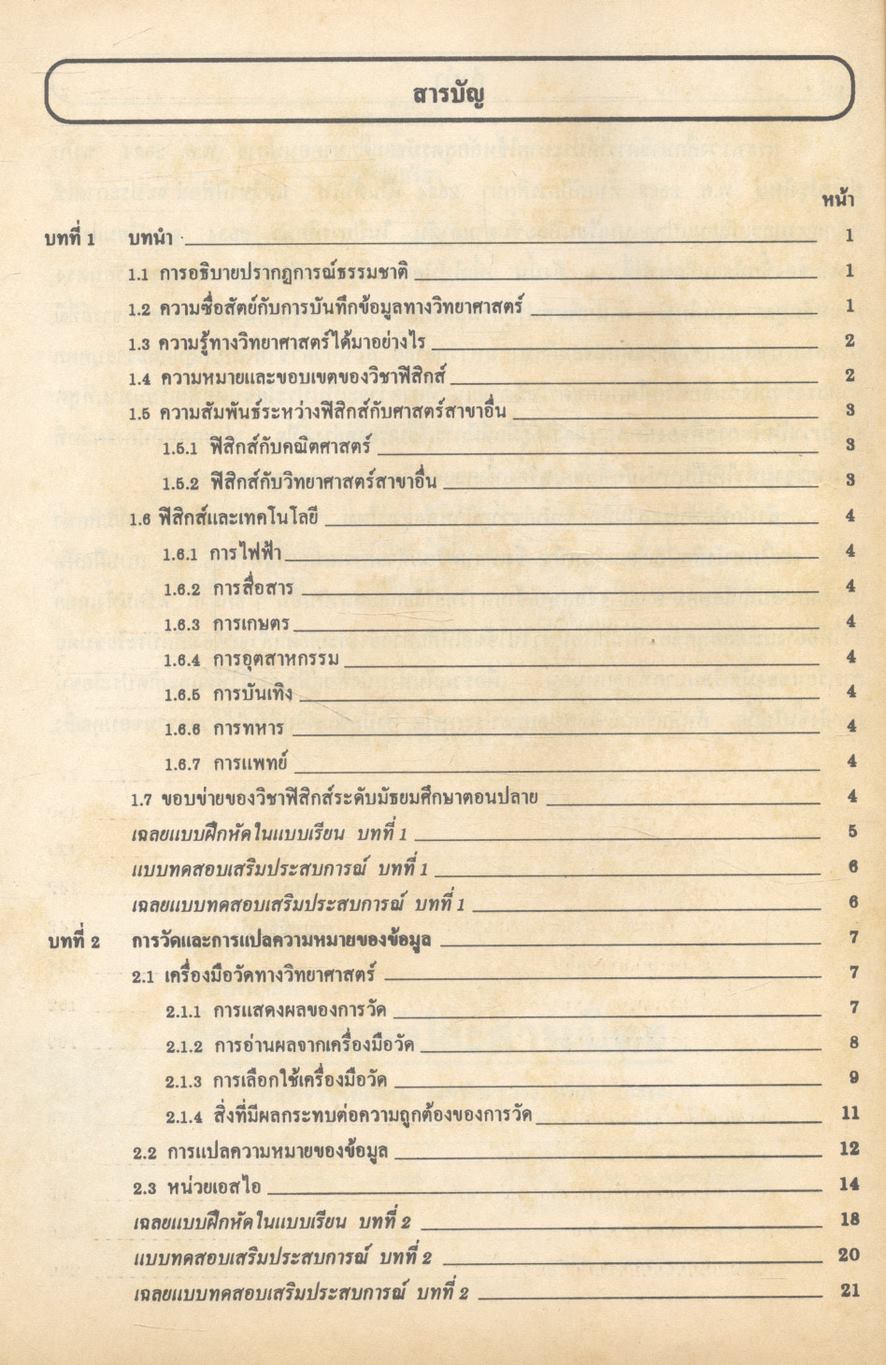 สารบัญ
หน้า
บทที่ 1 บทนำ 1
1.1 การอธิบายปรากฏการณ์ธรรมชาติ 1
1.2 ความซื่อสัตย์กับการบันทึกข้อมูลทางวิทยาศาสตร์ 1
1.3 ความรู้ทางวิทยาศาสตร์ได้มาอย่างไร 2
1.4 ความหมายและขอบเขตของวิชาฟิสิกส์ 2
1.5 ความสัมพันธ์ระหว่างฟิสิกส์กับศาสตร์สาขาอื่น 3
1.5.1 ฟิสิกส์กับคณิตศาสตร์ 3
1.5.2 ฟิสิกส์กับวิทยาศาสตร์สาขาอื่น 3
1.6 ฟิสิกส์และเทคโนโลยี 4
1.6.1 การไฟฟ้า 4
1.6.2 การสื่อสาร 4
1.6.3 การเกษตร 4
1.6.4 การอุตสาหกรรม 4
1.6.5 การบันเทิง 4
1.6.6 การทหาร 4
1.6.7 การแพทย์ 4
1.7 ขอบข่ายของวิชาฟิสิกส์ระดับมัธยมศึกษาตอนปลาย 4
เฉลยแบบฝึกหัดในแบบเรียน บทที่ 1 5
แบบทดสอบเสริมประสบการณ์ บทที่ 1 6
เฉลยแบบทดสอบเสริมประสบการณ์ บทที่ 1 6
บทที่ 2 การวัดและการแปลความหมายของข้อมูล 7
2.1 เครื่องมือวัดทางวิทยาศาสตร์ 7
2.1.1 การแสดงผลของการวัด 7
2.1.2 การอ่านผลจากเครื่องมือวัด 8
2.1.3 การเลือกใช้เครื่องมือวัด 9
2.1.4 สิ่งที่มีผลกระทบต่อความถูกต้องของการวัด 11
2.2 การแปลความหมายของข้อมูล 12
2.3 หน่วยเอสไอ 14
เฉลยแบบฝึกหัดในแบบเรียน บทที่ 2 18
แบบทดสอบเสริมประสบการณ์ บทที่ 2 20
เฉลยแบบทดสอบเสริมประสบการณ์ บทที่ 2 21